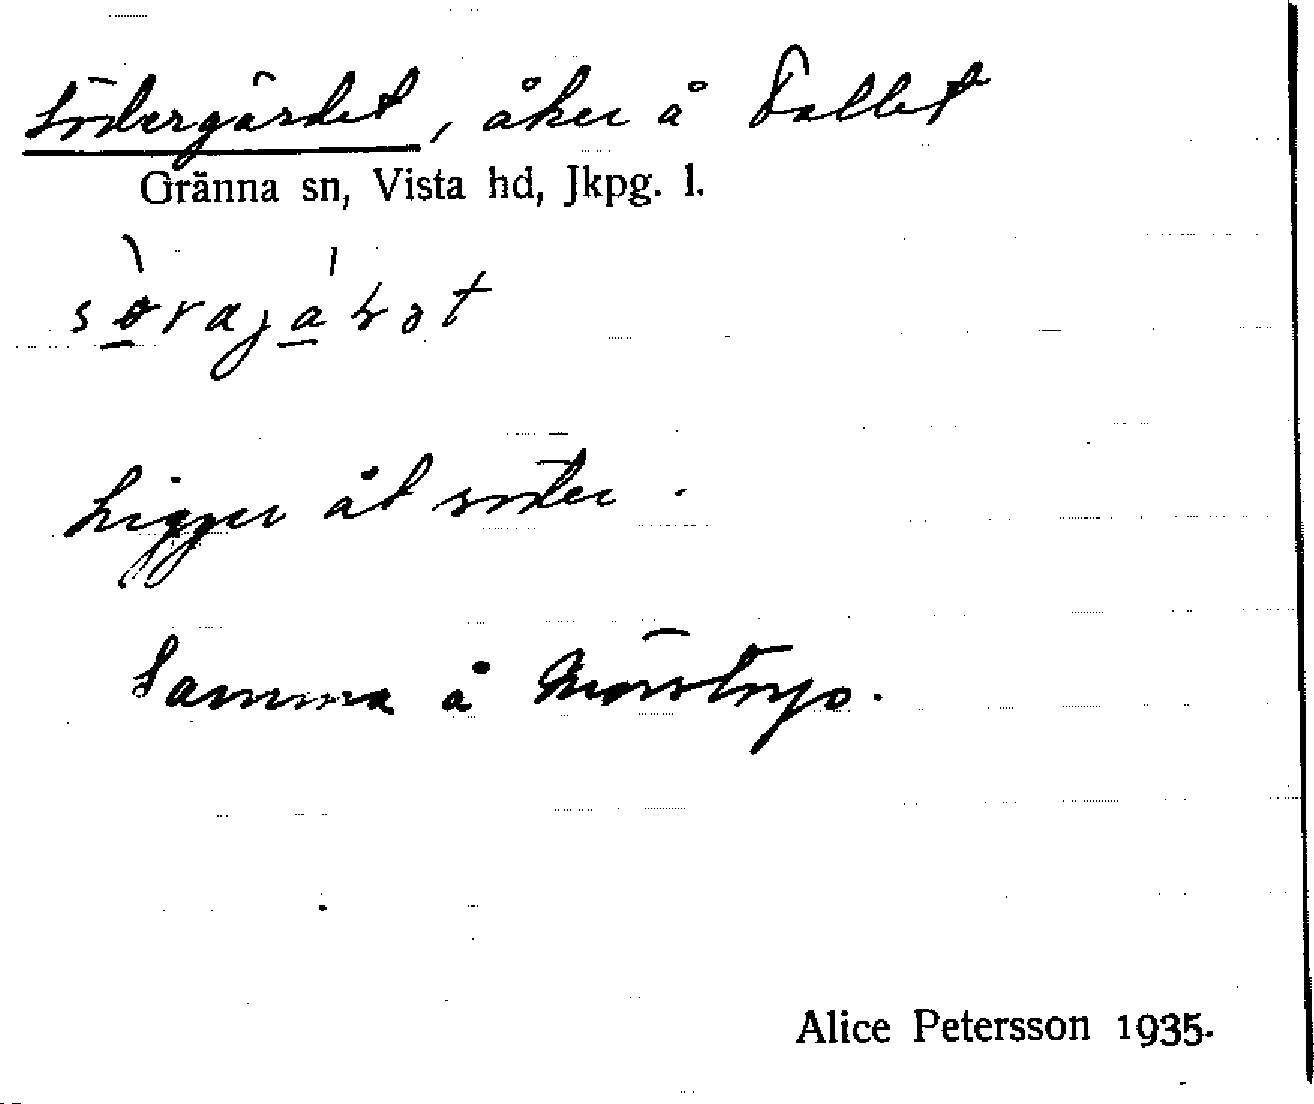 Södergärdet, åker å Fallet
Gränna sn, Vista hd, Jkpg. l.
Ligger åt söder.
Samma å
Alice Petersson 1935.